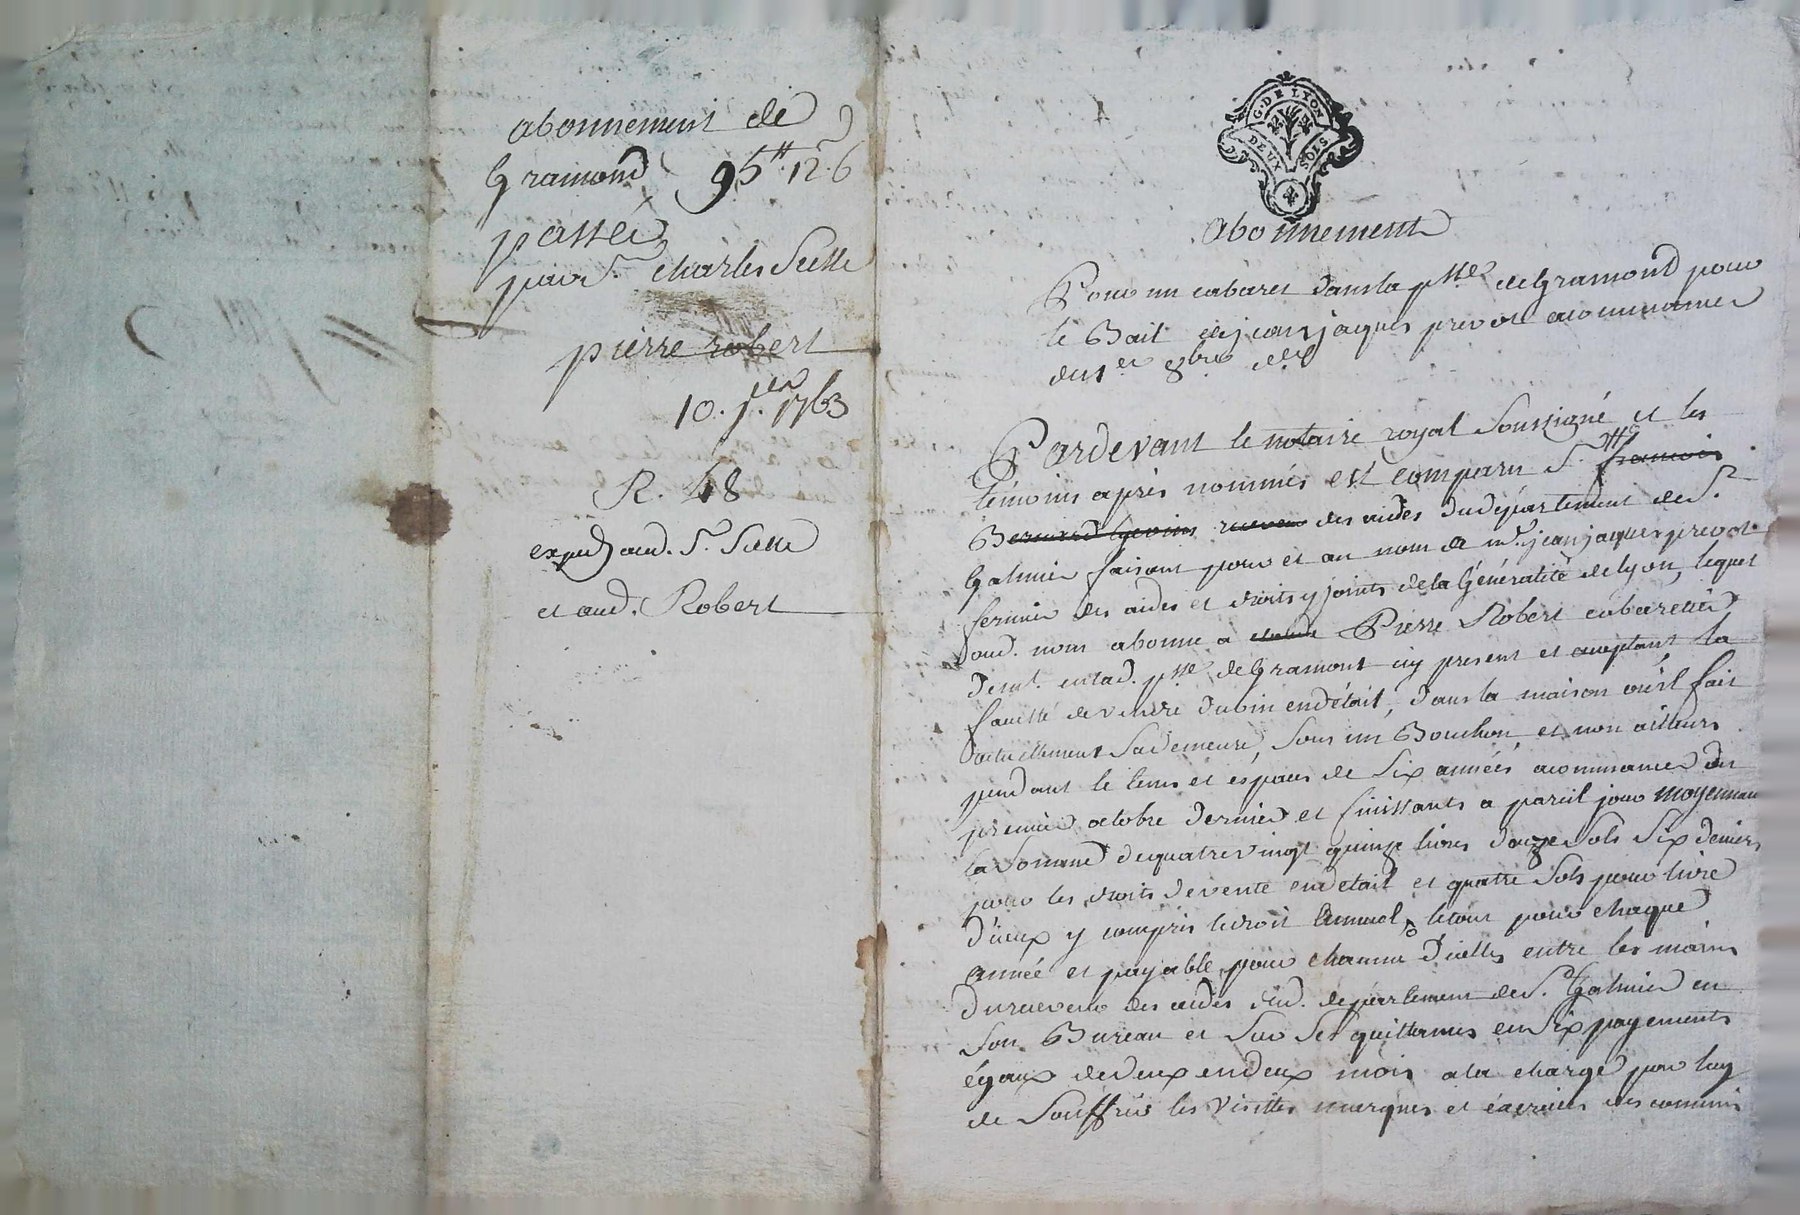 abonnement de
Gramond 95# 12 s 6
passé
par Sr. charles Sette
pierre robert
10. jer. 1763
R. 48
exped. aud. Sr. Sette
et aud. Robert
G. DE LYON
DEUX SOLS
abonnement
Pour un cabaret dans la psse de Gramond pour
le Bail de jean jaques prevot a commancer
du 1er 8bre
Pardevant le notaire royal Soussigné et les
témoins après nommés est comparu Sr. francois
Bernard receveur des aides du département de St.
Galmier faisant pour et au nom de me. jean jaques prevot
fermier des aides et droits y joints de la Généralité de lyon, lequel
aud. nom abonne a claude Pierre Robert cabaretier
demt. en lad. psse de Gramont icy present et acceptant la
faculté de vendre du vin en détail, dans la maison ou il fait
actuellement Sa demeure, Sous un Bouchon et non ailleurs
pendant le tems et espace de Six années a commancer du
premier octobre dernier et finissants a pareil jour moyennant
la Somme de quatre vingt quinze livres douze Sols Six deniers
pour les droits de vente en détail et quatre Sols pour livre
d'iceux y compris le droit annuel le tout pour chaque
année et payable pour chacune d'icelles entre les mains
du receveur des aides dud. département de St. Galmier en
Son Bureau et Sur Ses quittances en Six payements
égaux de deux en deux mois a la charge par luy
de Souffrir les Visittes marques et éxercices des commis